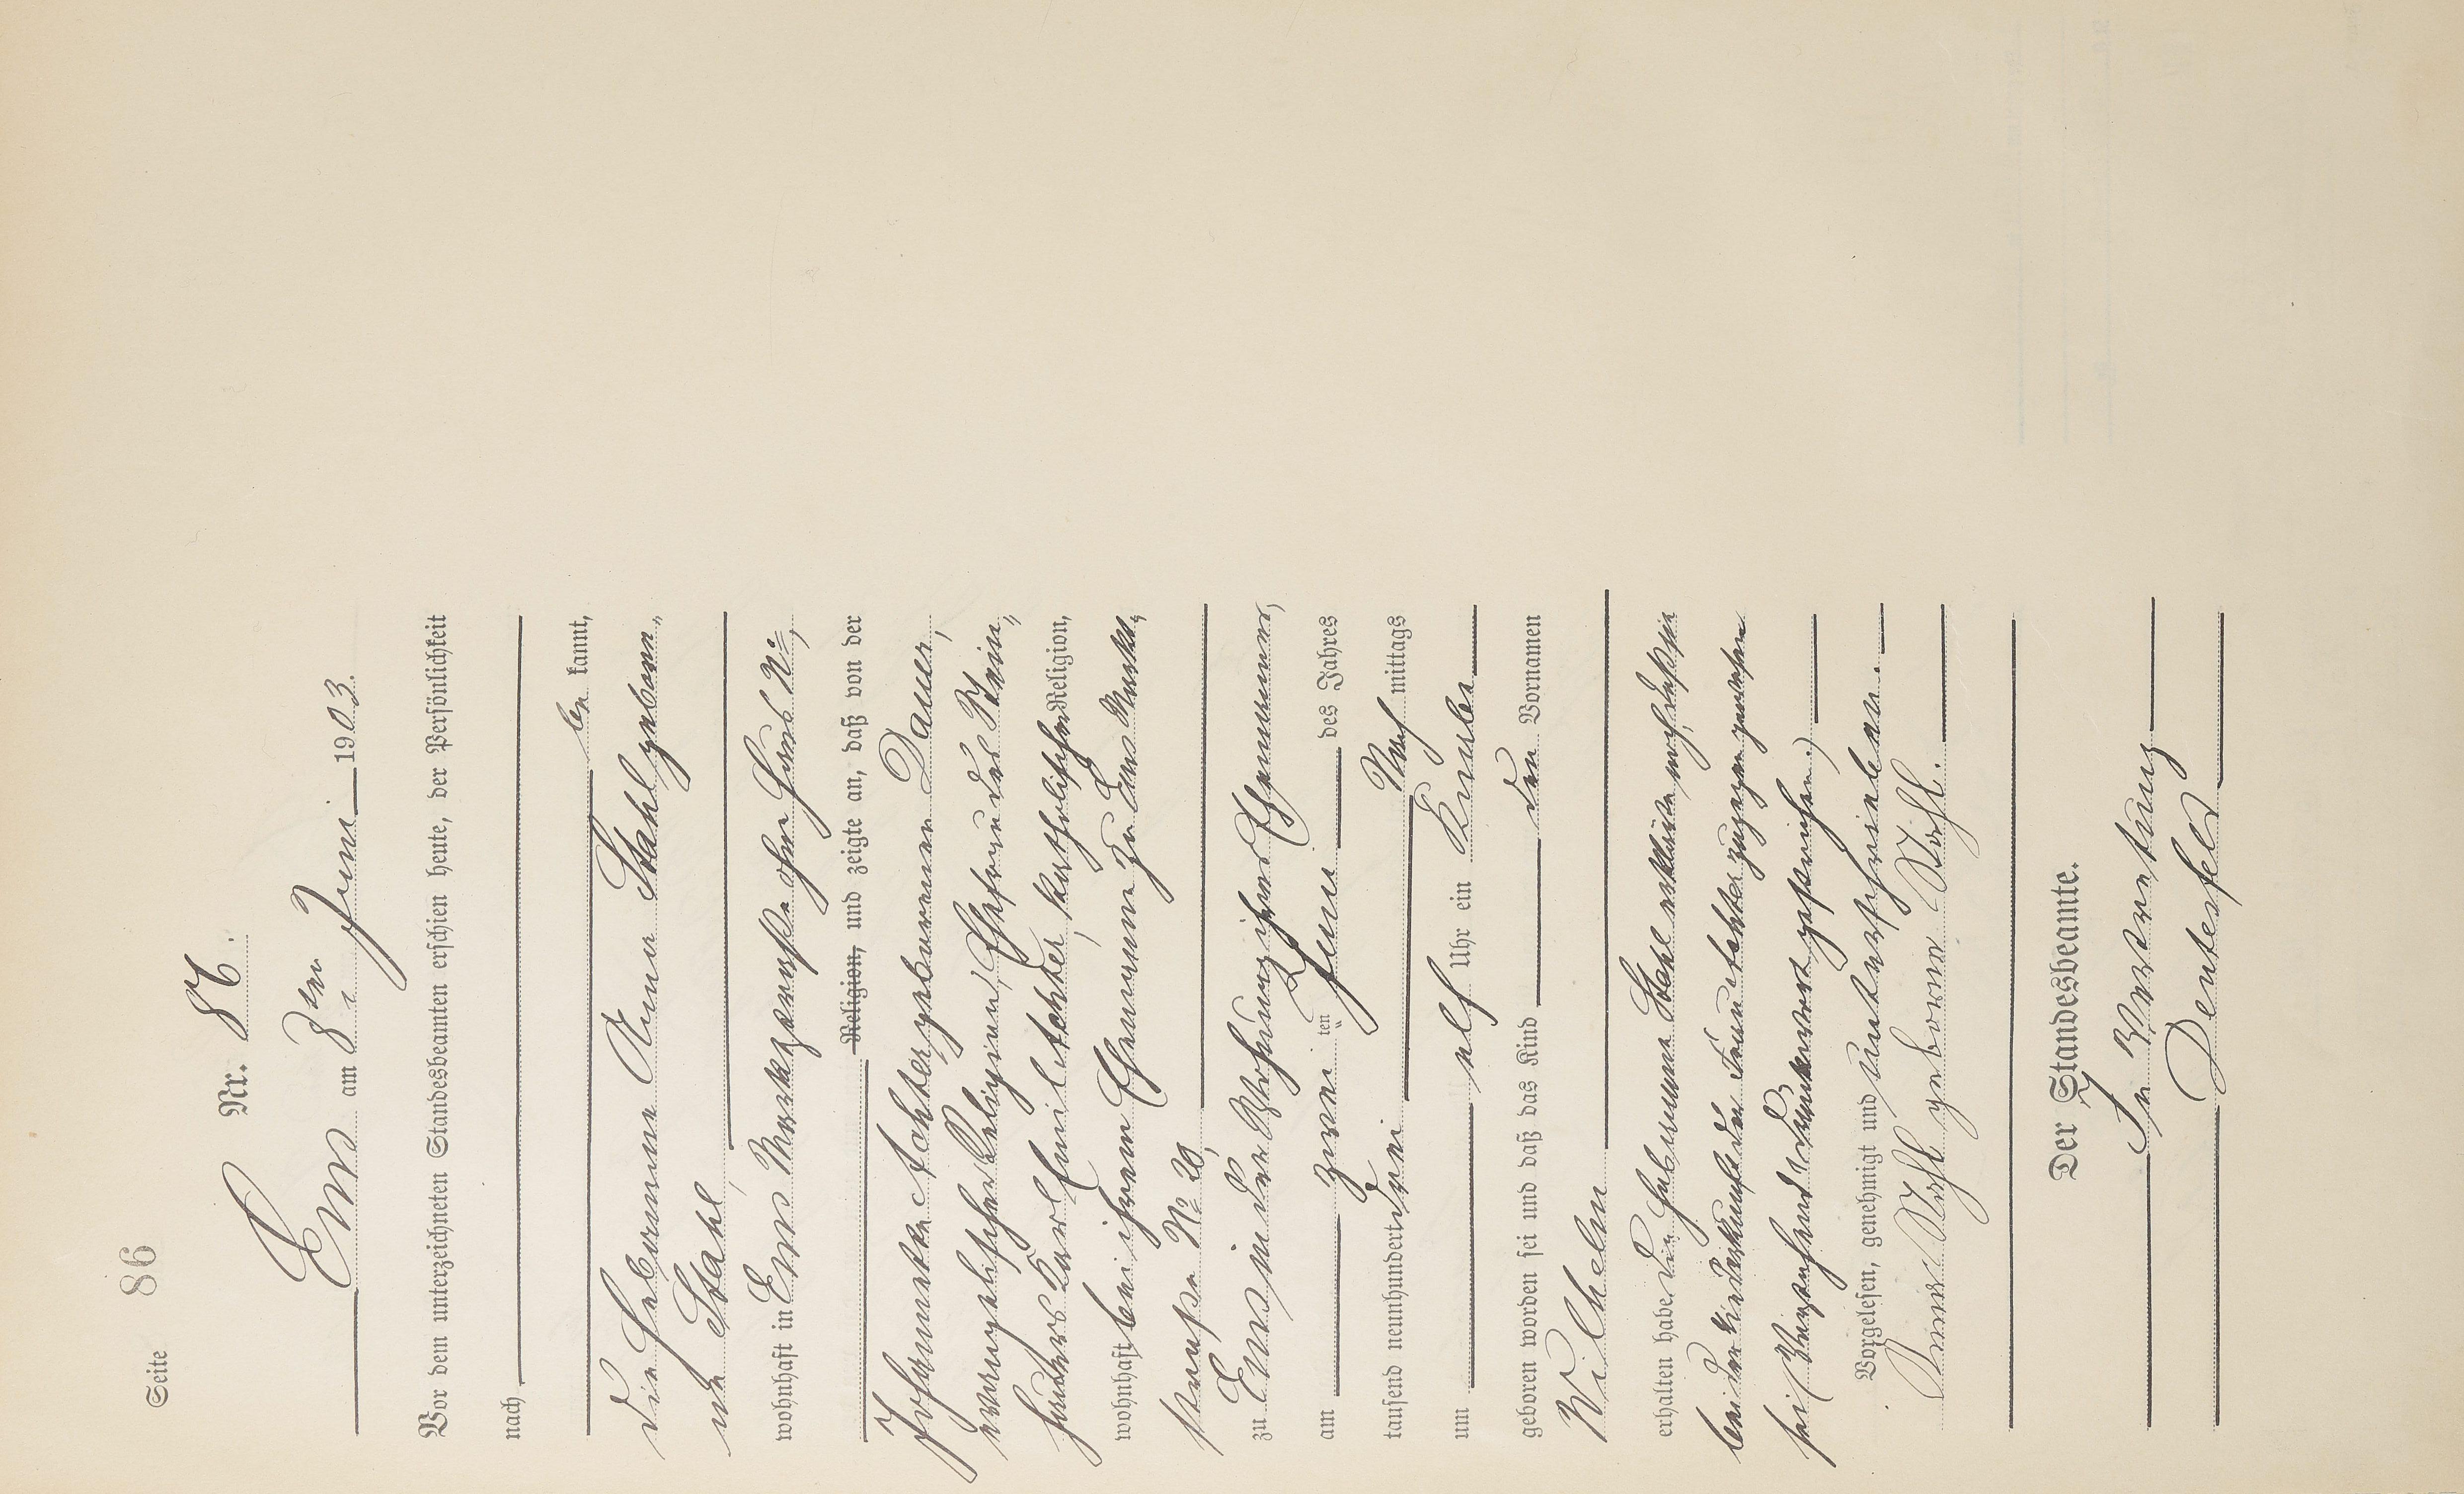 Seite 86
Nr. 86.
Ems am 8ten Juni 1903.
Vor dem unterzeichneten Standesbeamten erschien heute, der Persönlichkeit
nach
be kannt,
die Hebamme Anna Stahl gebore-
ne Stahl,
wohnhaft in Ems Marktstraße ohne Haus No.,
Religion, und zeigte an, daß von der
geborenen Dauer,
evangelischer Religion, Ehefrau des
Karl Emil katholischer Religion,
wohnhaft bei ihrem Ehemanne zu Ems Markt-
straße No 20,
zu Ems in der Wohnung ihres Ehemannes,
am zwei ten Juni des Jahres
tausend neunhundert drei Nach mittags
um elf Uhr ein Knabe
geboren worden sei und daß das Kind den Vornamen
Wilhelm
erhalten habe. Die Hebamme Stahl erklärte noch, daß sie
bei der Niederkunft der zugegen gewesen
sei. (Vorstehend Druckwort gestrichen.)
Vorgelesen, genehmigt und unterschrieben.
Anna Stahl geborne Stahl.
Der Standesbeamte.
In Vertretung